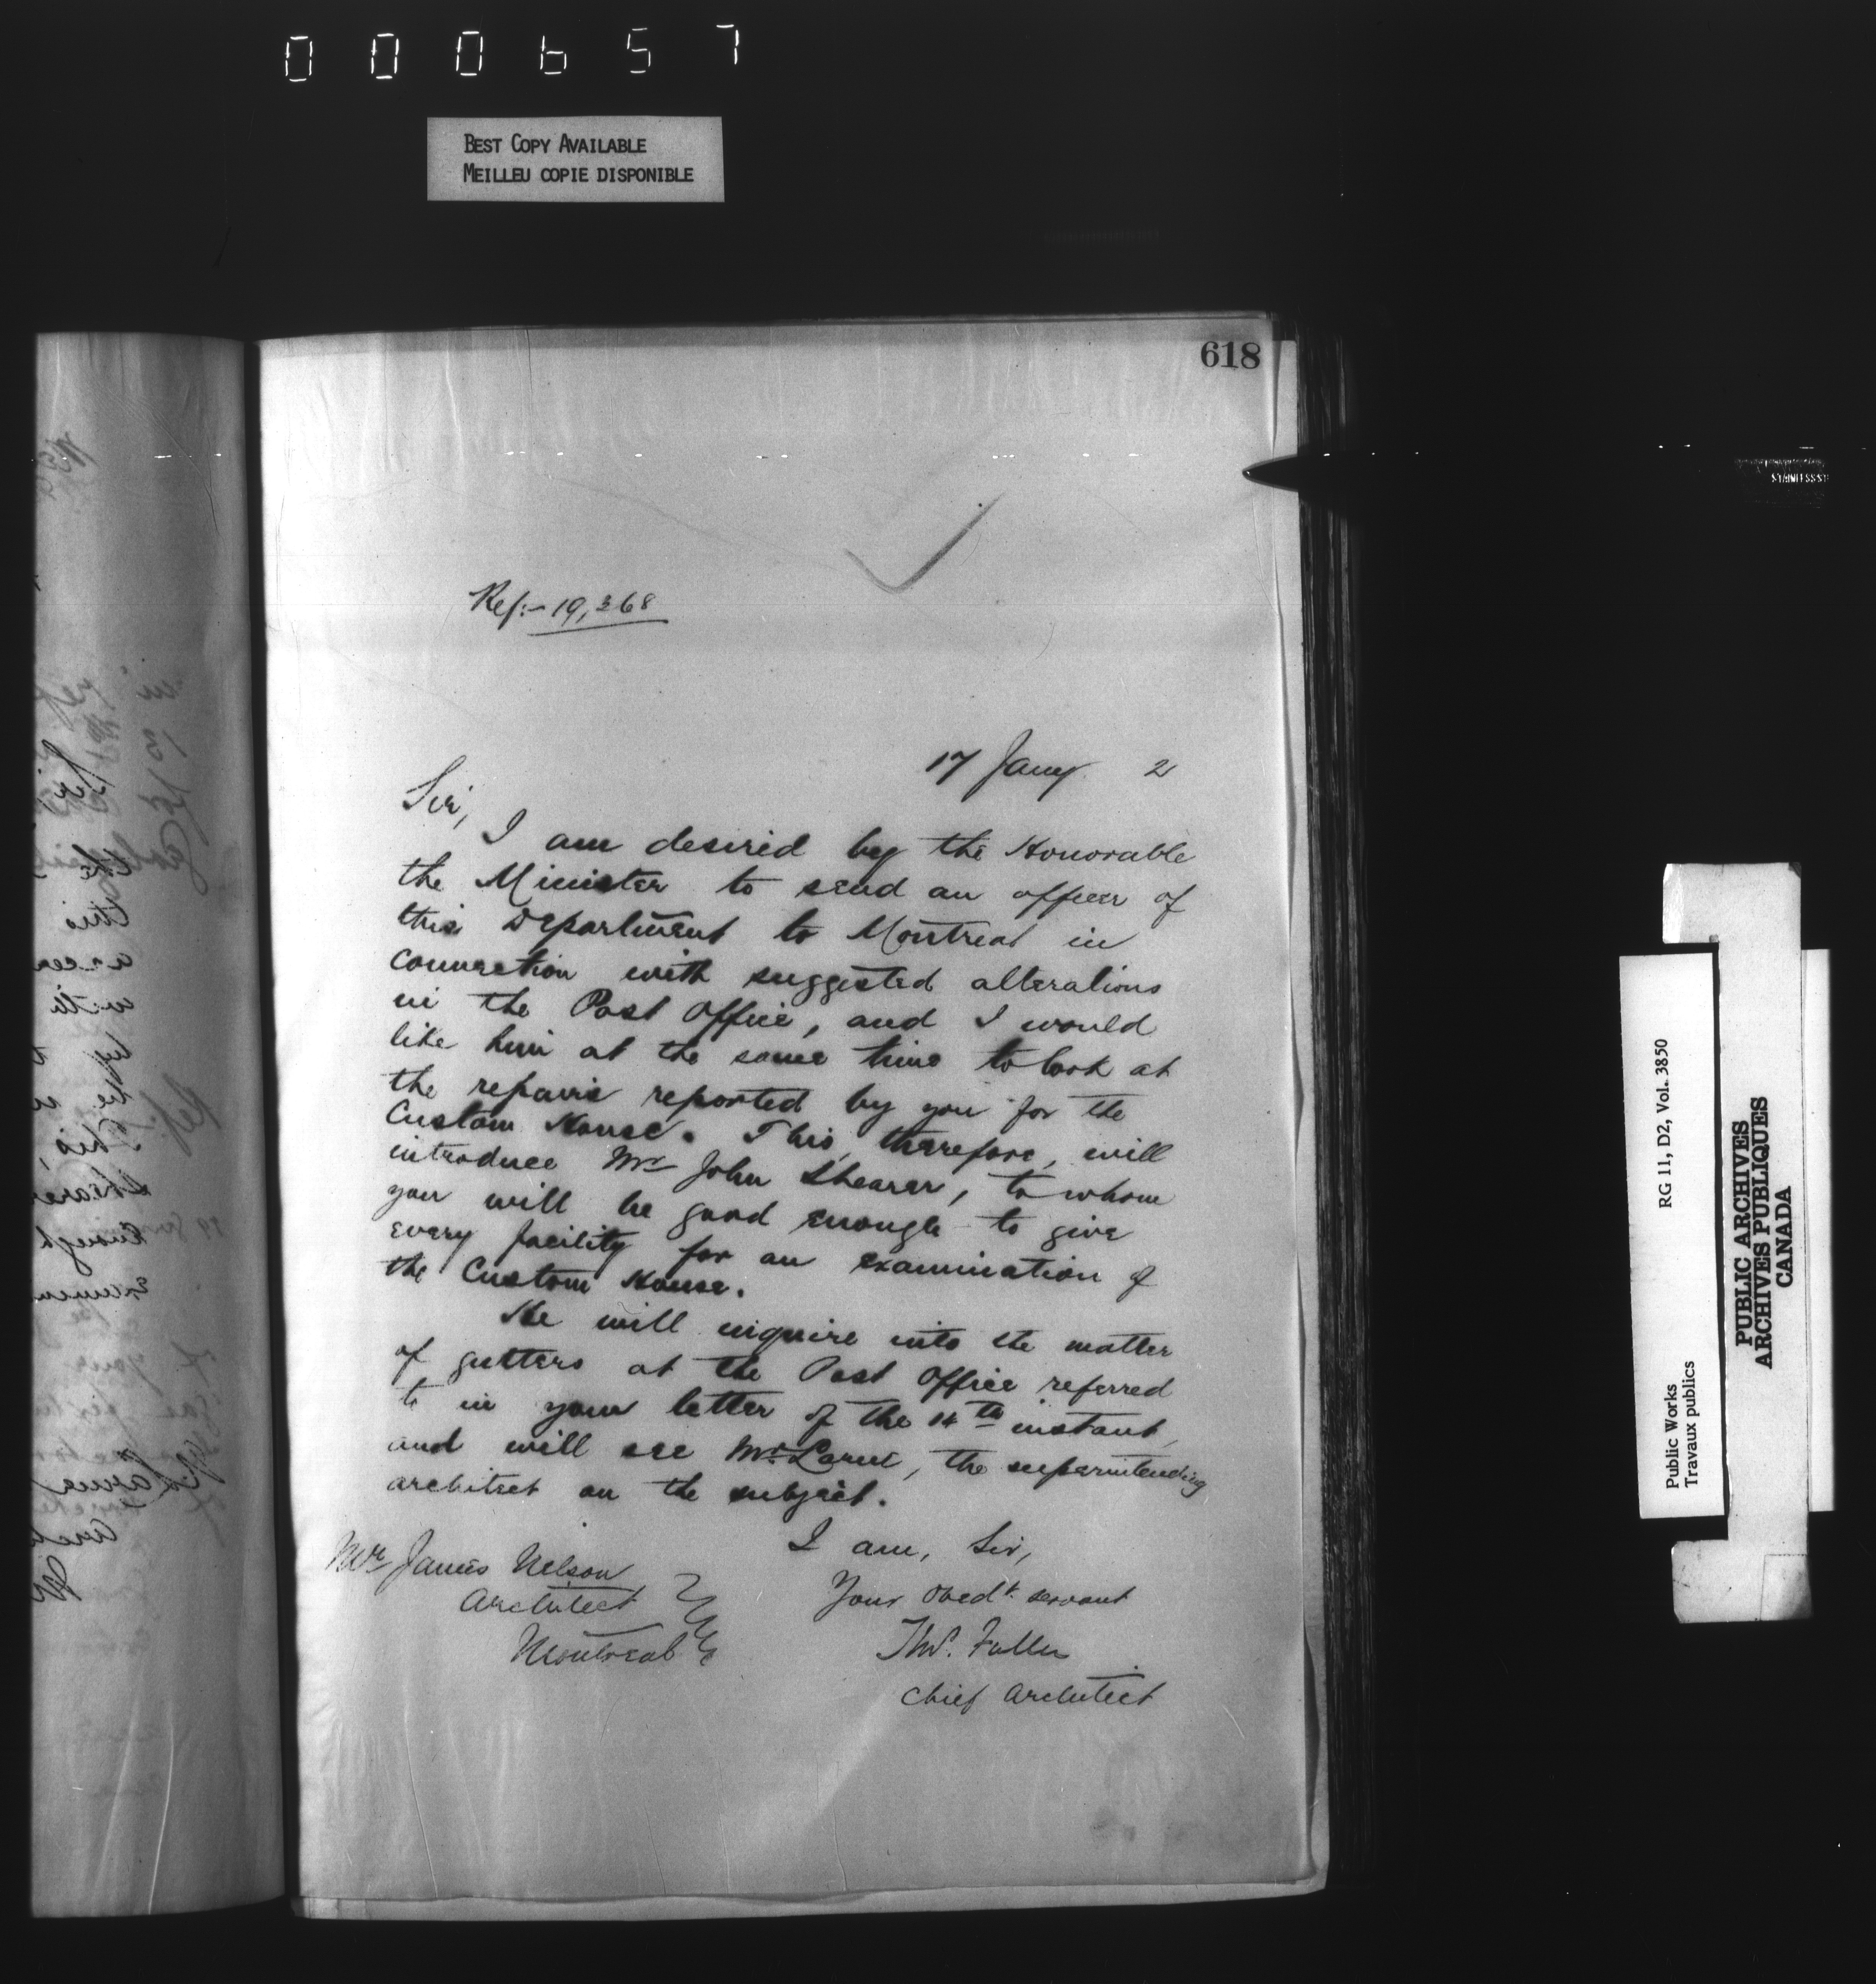 000657
BEST COPY AVAILABLE
MEILLEU COPIE DISPONIBLE
618
Ref:- 19,368
17 Jany 2
Sir,
I am desired by the Honorable
the Minister to send an officer of
this Department to Montreal in
connection with suggested alterations
in the Post Office, and I would
like him at the same time to look at
the repairs reported by you for the
Custom House. This, therefore, will
introduce Mr John Shearer, to whom
you will be good enough to give
every facility for an examination of
the Custom House.
He will inquire into the matter
of gutters at the Post Office referred
to in your letter of the 14th instant,
and will see Mr Larue, the superintending
architect on the subject.
I am, Sir,
Your Obedt. servant
Thos. Fuller
Chief Architect
Mr James Nelson
Architect
Montreal
RG 11, D2, Vol. 3850
Public Works
Travaux publics
PUBLIC ARCHIVES
ARCHIVES PUBLIQUES
CANADA